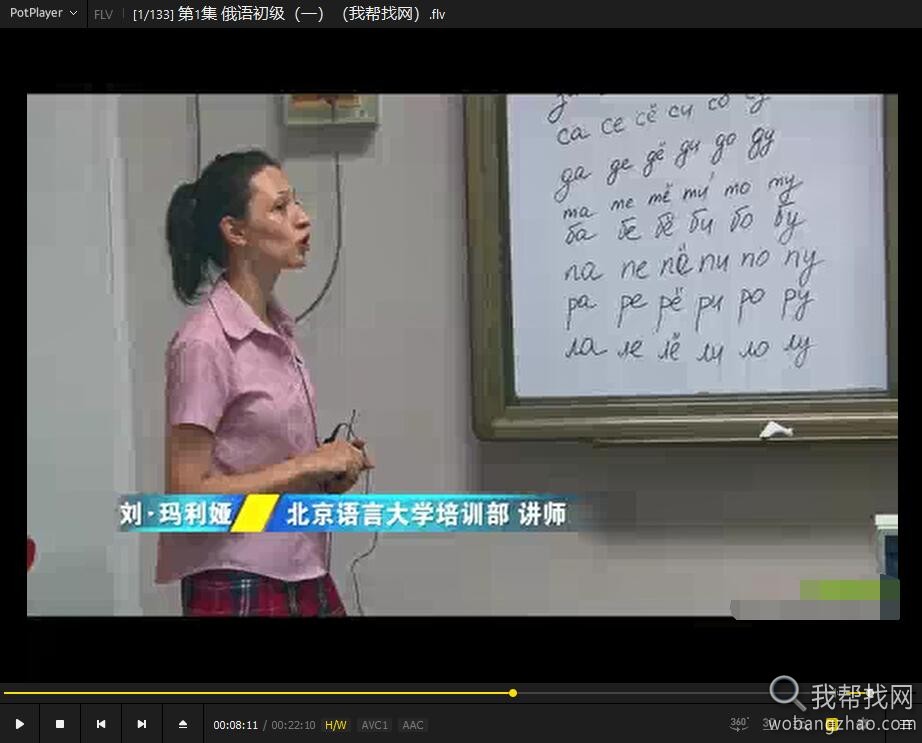 PotPlayer FLV [1/133] 第1集 俄语初级（一）（我帮找网）.flv
са се сё си со су
да де дё ди до ду
та те тё ти то ту
ба бе бё би бо бу
па пе пё пи по пу
ра ре рё ри ро ру
ла ле лё ли ло лу
刘·玛利娅 北京语言大学培训部 讲师
我帮找网
00:08:11 / 00:22:10 H/W AVC1 AAC 360° wobangzhao.com